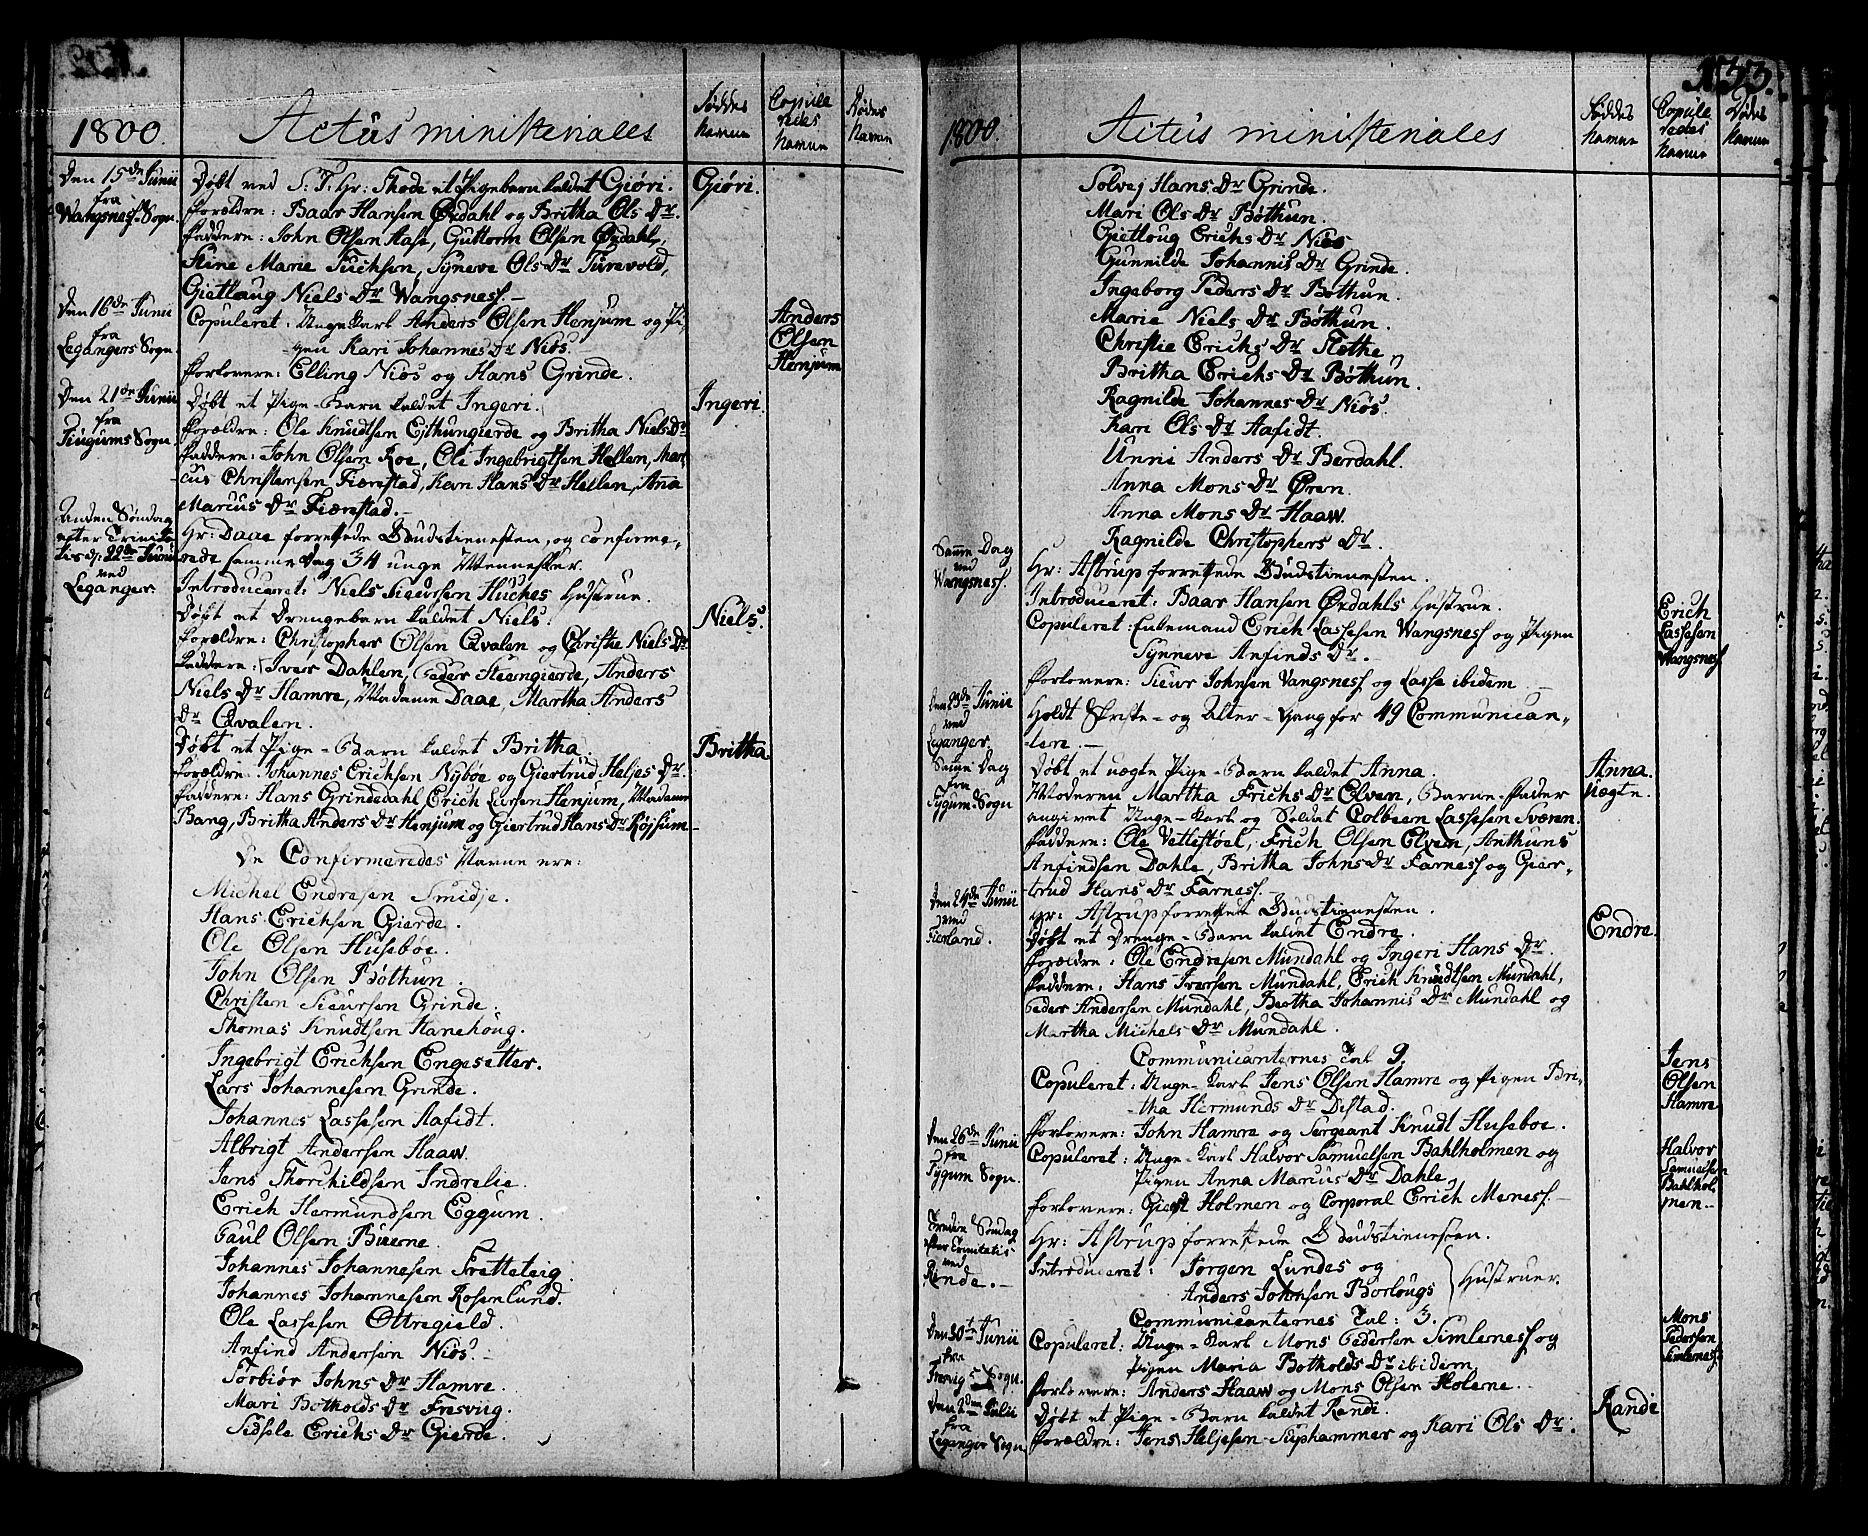 1800.
Actus ministeriales
Føddes Navne
Copule redes Navne
Dødes Navne
Den 15de Junii fra Wangsness Sogn.
Døbt ved S: T: Hr: Thode et Pigebarn kaldet Giøri.
Giøri.
Forældre: Baar Hansen Ørdahl og Britha Ols Dr.
Faddere: John Olsen Hase, Guttorm Olsen Ørdahl,
Stine Marie Fuchsen, Synneve Ols Dr Turevold,
Giettoug Niels Dr Wangsness.
Den 16de Junii fra Legangers Sogn.
Copuleret: Unge Karl Anders Olsen Henjum og Pi-
gen Kari Johannes Dr Niøs.
Anders Olsen Henjum
Forlovere: Elling Niøs og Hans Grinde.
Den 21de Junii fra Tiugums Sogn
Døbt et Pige-Barn kaldet Ingeri.
Ingeri.
Forældre: Ole Knudtsen Esthungierde og Britha Niels Dr
Faddere: John Olsen Roe, Ole Ingebrigtsen Hellen, Mar-
cus Christensen Fiærestad, Kari Hans Dr Hellen, Ana
Marcus Dr Fiærestad.
Anden Søndag efter Trinita- tis d: 22de Junii ved Leganger.
Hr: Daae forrettede Gudstienesten, og confirme-
rede samme Dag 34 unge Mennesker.
Introduceret: Niels Siursen Huches Hustrue.
Døbt et Drengebarn kaldet Niels.
Niels.
Forældre: Christopher Olsen Qvalen og Christie Niels Dr
Faddere: Iver Dahlen, Peder Steengierde, Anders
Niels Dr Hamre, Madame Daae, Martha Anders
Dr Qvalen.
Døbt et Pige-Barn kaldet Britha.
Britha
Forældre: Johannes Erichsen Nybøe og Giertrud Heljes Dr.
Faddere: Hans Grindedahl Erich Larsen Henjum, Madame
Bang, Britha Anders Dr Henjum og Giertrud Hans Dr Røjsum
De Confirmeredes Navne ere:
Michel Endresen Smidje.
Hans Erichsen Gierde.
Ole Olsen Husebøe.
John Olsen Bøthun.
Christen Siursen Grinde.
Thomas Knudtsen Hanehoug.
Ingebrigt Erichsen Engesetter.
Lars Johannesen Grinde.
Johannes Lassesen Aafidt.
Albrigt Andersen Haaw.
Jens Thorchildsen Indrelie.
Erich Hermundsen Eggum.
Paul Olsen Buene.
Johannes Johannesen Tretteteig.
Johannes Johannesen Rosenlund.
Ole Lassesen Ottregield.
Anfind Andersen Niøs.
Torbiør Johns Dr Hamre.
Mari Botholds Dr Fresvig.
Sidsele Erichs Dr Gierde.
133.
1800.
Actus ministeriales
Føddes Navne
Copule redes Navne
Dødes Navne
Solvej Hans Dr Grinde.
Mari Ols Dr Bøthun.
Gietloug Erichs Dr Niøs
Gunnilde Johannis Dr Grinde.
Ingeborg Peders Dr Bøthun.
Marie Niels Dr Bøthun.
Christie Erichs Dr Slethe
Britha Erichs Dr Bøthun.
Ragnilde Johannes Dr Niøs.
Kari Ols Dr Aafidt.
Unni Anders Dr Berdahl.
Anna Mons Dr Øren.
Anna Mons Dr Haaw.
Ragnilde Christophers Dr.
Samme Dag ved Wangsness.
Hr: Astrup forrettede Gudstienesten.
Introduceret: Baar Hansen Ørdahls Hustrue.
Copuleret: Enkemand Erich Lassesen Wangsness og Pigen
Synneve Anfinds Dr.
Erich Lassesen Wangsness
Forlovere: Siur Johnsen Vangsness og Lasse ibidem.
Den 23de Junii ved Leganger.
Holdt Skrifte- og Alter-Gang for 49 Communican-
tere.
Samme Dag fra Tygum Sogn
Døbt et uægte Pige-Barn kaldet Anna.
Anna. Uægte.
Moderen Martha Erichs Dr Elven, Barne-Fader
angivet Unge-Karl og Soldat Colbeen Lassesen Sværen.
Faddere: Ole Vettestøel, Erich Olsen Elven, Anthuns
Anfindsen Dahle, Britha Johns Dr Farness og Gier-
trud Hans Dr Farness.
Den 24de Junii ved Fierland.
Hr: Astrup forrettede Gudstienesten.
Døbt et Drenge-Barn kaldet Endre.
Endre.
Forældre: Ole Endresen Mundahl og Ingeri Hans Dr.
Faddere: Hans Iversen Mundahl, Erich Knudtsen Mundahl,
Peder Andersen Mundahl, Bertha Johannis Dr Mundahl og
Martha Michels Dr Mundahl.
Communicanternes Tal 9.
Copuleret: Unge-Karl Jens Olsen Hamre og Pigen Bri-
tha Hermunds Dr Distad.
Jens Olsen Hamre
Forlovere: John Hamre og Sergeant Knudt Husebøe.
Den 26de Junii fra Tygum Sogn.
Copuleret: Unge-Karl Halvor Samuelsen Bahlholmen og
Pigen Anna Marcus Dr Dahle.
Halvor Samuelsen Bahlhol- men.
Forlovere: Giert Holmen og Corporal Erich Meness.
Tredie Søndag efter Trinitatis ved Rinde.
Hr: Astrup forrettede Gudstienesten.
Introduceret: Jørgen Lundes og
Anders Johnsen Borlougs } Hustruer.
Communicanternes Tal: 3.
Den 30te Junii fra Fresvig S Sogn.
Copuleret: Unge-Karl Mons Pedersen Simleness og
Pigen Maria Botholds Dr ibidem
Mons Pedersen Simleness
Forlovere: Anders Haaw og Mons Olsen Holene.
Den 2den Julii fra Leganger Sogn
Døbt et Pige-Barn kaldet Randi.
Randi
Forældre: Jens Heljesen Suphammer og Kari Ols Dr.